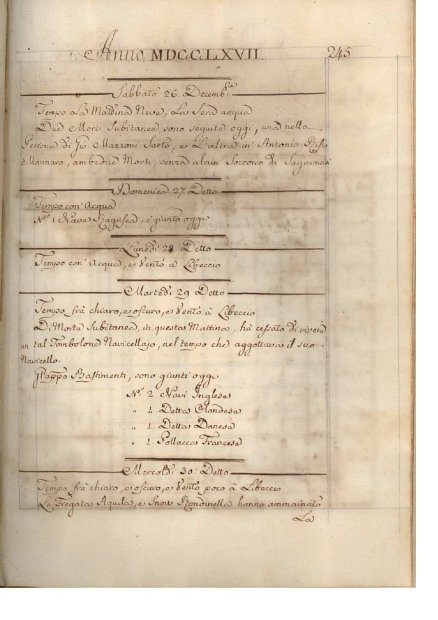 Anno MDCCLXVII 245
Sabbato 26. Decemb.re
Tempo La Mattina Neve, La Sera acqua
Due Morti Subitanee sono seguite oggi, una nella
Persona di Gio: Mazzoni Sarto, e L'altra in Antonio
Marinaro, ambedue Morti, senza alcun Soccorso di Sagramenti
Domenica 27. Detto
Tempo con Acqua
N.o 1 Nave Ragusea, è giunta oggi
Lunedì 28 Detto
Tempo con Acqua, e Vento à Libeccio
Martedì 29 Detto
Tempo frà chiaro, e oscuro, e Vento à Libeccio
Di Morte Subitanea, in questa Mattina, hà cessato di vivere
un tal Tombolone Navicellajo, nel tempo che aggottava il suo
Navicello.
Bastimenti, sono giunti oggi
N.o 2 Navi Inglese
" 1 Detta Olandese
" 1 Detta Danese
" 1 Pollacca Francese
Mercoldì 30. Detto
Tempo frà chiaro, e oscuro, e Vento poco à Libeccio
La Fregata Aquila, e Rondinella hanno ammainato
La